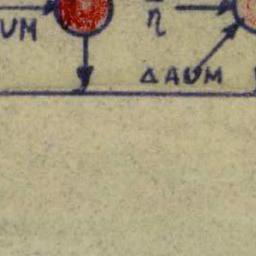 UM
η
ΔAUM